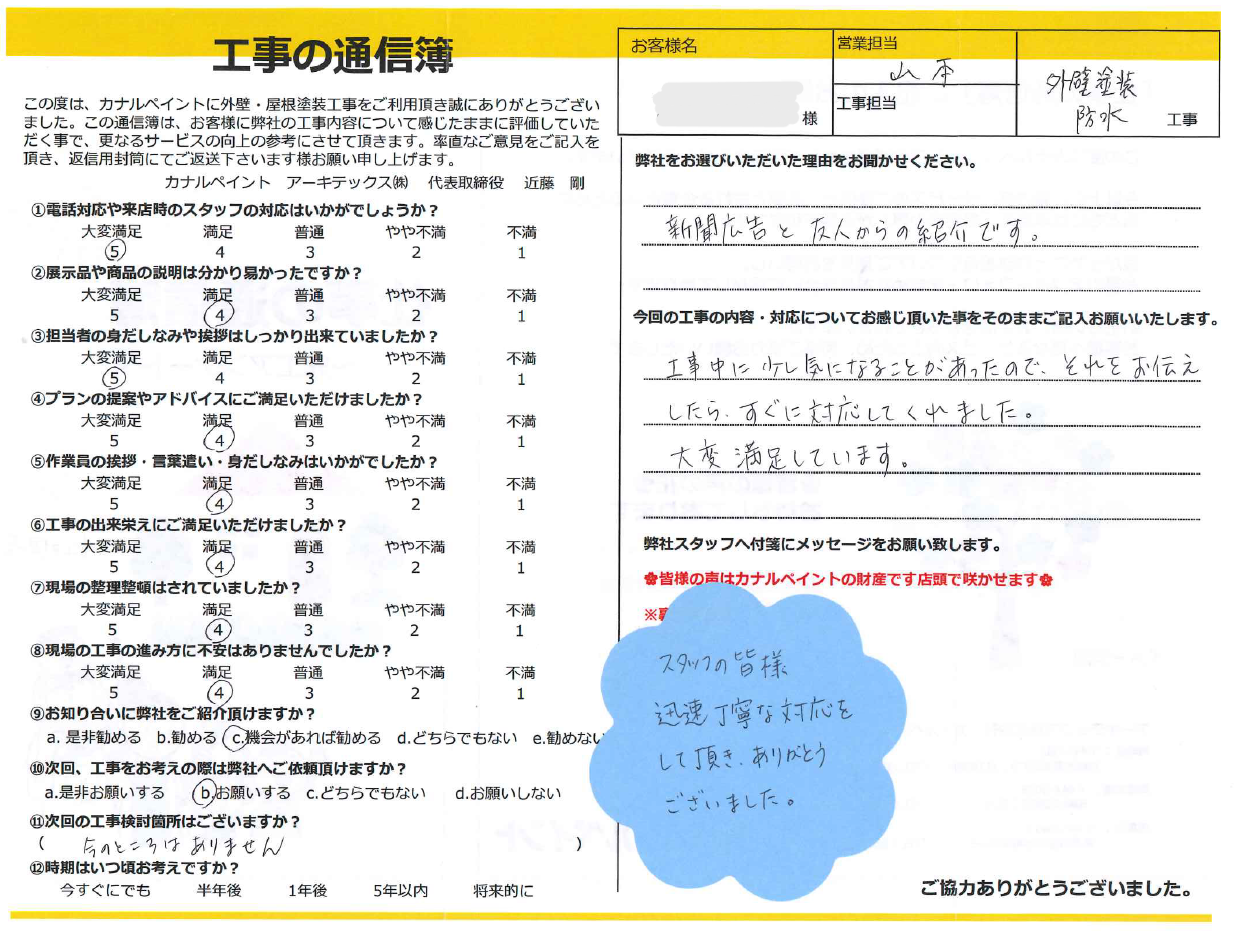 工事の通信簿
この度は、カナルペイントに外壁・屋根塗装工事をご利用頂き誠にありがとうござい
ました。この通信簿は、お客様に弊社の工事内容について感じたままに評価していた
だく事で、更なるサービスの向上の参考にさせて頂きます。率直なご意見をご記入を
頂き、返信用封筒にてご返送下さいます様お願い申し上げます。
カナルペイント アーキテックス㈱ 代表取締役 近藤 剛
①電話対応や来店時のスタッフの対応はいかがでしょうか？
大変満足 満足 普通 やや不満 不満
5 4 3 2 1
②展示品や商品の説明は分かり易かったですか？
大変満足 満足 普通 やや不満 不満
5 4 3 2 1
③担当者の身だしなみや挨拶はしっかり出来ていましたか？
大変満足 満足 普通 やや不満 不満
5 4 3 2 1
④プランの提案やアドバイスにご満足いただけましたか？
大変満足 満足 普通 やや不満 不満
5 4 3 2 1
⑤作業員の挨拶・言葉遣い・身だしなみはいかがでしたか？
大変満足 満足 普通 やや不満 不満
5 4 3 2 1
⑥工事の出来栄えにご満足いただけましたか？
大変満足 満足 普通 やや不満 不満
5 4 3 2 1
⑦現場の整理整頓はされていましたか？
大変満足 満足 普通 やや不満 不満
5 4 3 2 1
⑧現場の工事の進み方に不安はありませんでしたか？
大変満足 満足 普通 やや不満 不満
5 4 3 2 1
⑨お知り合いに弊社をご紹介頂けますか？
a. 是非勧める b.勧める c.機会があれば勧める d.どちらでもない e.勧めない
⑩次回、工事をお考えの際は弊社へご依頼頂けますか？
a.是非お願いする b.お願いする c.どちらでもない d.お願いしない
⑪次回の工事検討箇所はございますか？
( 今のところはありません )
⑫時期はいつ頃お考えですか？
今すぐにでも 半年後 1年後 5年以内 将来的に
お客様名
様
営業担当
山本
工事担当
外壁塗装
防水 工事
弊社をお選びいただいた理由をお聞かせください。
新聞広告と友人からの紹介です。
今回の工事の内容・対応についてお感じ頂いた事をそのままご記入お願いいたします。
工事中に少し気になることがあったので、それをお伝え
したら、すぐに対応してくれました。
大変満足しています。
弊社スタッフへ付箋にメッセージをお願い致します。
✿皆様の声はカナルペイントの財産です店頭で咲かせます✿
※
スタッフの皆様
迅速丁寧な対応を
して頂き、ありがとう
ございました。
ご協力ありがとうございました。